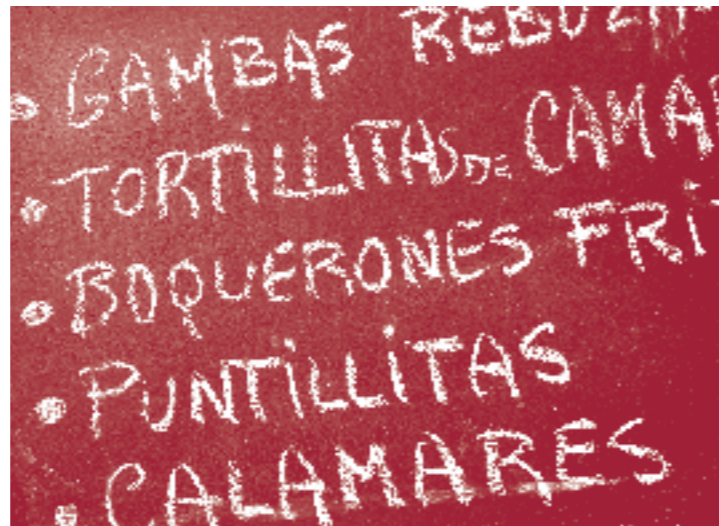 • GAMBAS REBOZA
• TORTILLITAS DE CAMAR
• BOQUERONES FRIT
• PUNTILLITAS
• CALAMARES